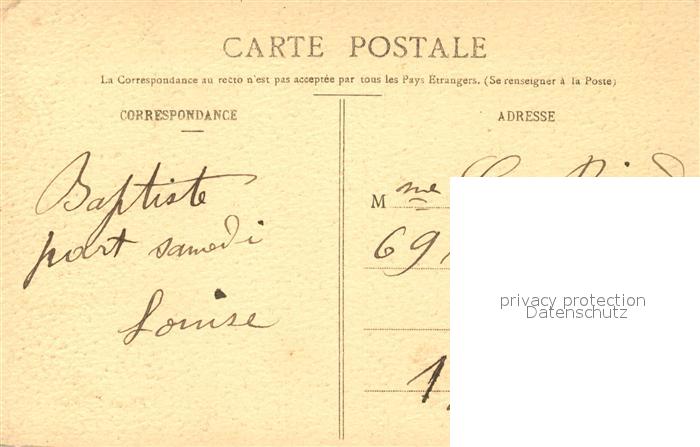 CARTE POSTALE
La Correspondance au recto n'est pas acceptée par tous les Pays Etrangers. (Se renseigner à la Poste)
CORRESPONDANCE
Baptiste
part samedi
Louise
ADRESSE
Mme
69
privacy protection
Datenschutz